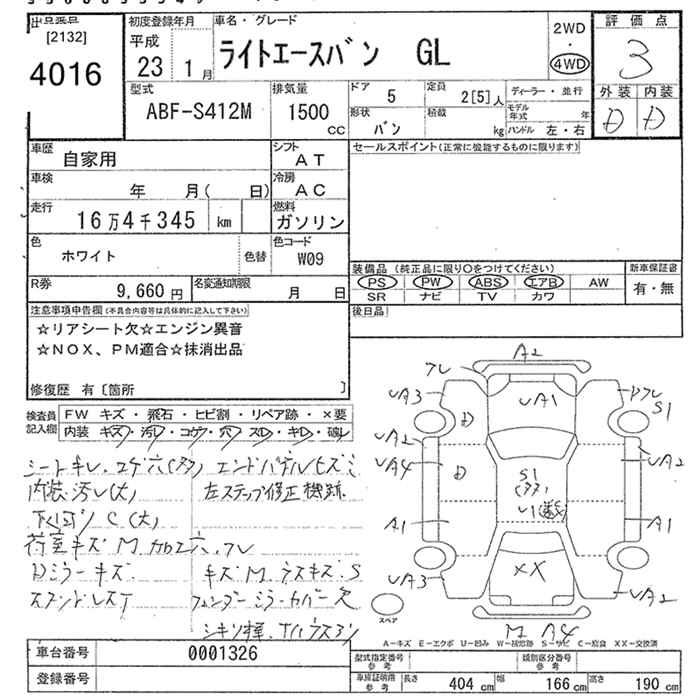 出品票 [2132] 4016
初度登録年月 平成 23年 1月
車名・グレード ライトエースバン GL
2WD ・ 4WD
評価点 3
外装 D 内装 D
型式 ABF-S412M
排気量 1500 CC
ドア 5 定員 2[5]人
形状 バン 積載 kg
ディーラー・並行
モデル年式 年
ハンドル 左・右
車歴 自家用
シフト AT
セールスポイント(正常に機能するものに限ります)
車検 年 月( 日)
冷房 AC
走行 16万4千345 km
燃料 ガソリン
色 ホワイト 色替
色コード W09
装備品(純正品に限り○をつけてください)
PS PW ABS エアB AW
SR ナビ TV カワ
新車保証書 有・無
R券 9,660円
名変通知期限 月 日
後日品
注意事項申告欄(不具合内容等は具体的に記入して下さい)
☆リアシート欠☆エンジン異音
☆NOX、PM適合☆抹消出品
修復歴 有〔箇所 〕
検査員記入欄
FW キズ・飛石・ヒビ割・リペア跡・×要
内装 キズ・汚レ・コゲ・穴・スレ・キレ・破レ
シートキレ、コゲ穴(多)
エンドパネルヒズミ
内装汚レ(大)
左ステップ修正機跡
下回り C(大)
荷室キズ M カロエ穴、フレ
Dミラーキズ
キズ M ウスキズ、S
フェンダーミラーカバー欠
A2
フレ
UA3
UA1
S1
D
UA2
UA4
D
S1
(多)
UA2
A1
A1
UA3
XX
UA2
スペア
M A4
A-キズ E-エクボ U-凹み W-補修跡 S-サビ C-腐食 XX-交換済
車台番号 0001326
登録番号
型式指定番号 参考
類別区分番号 参考
車庫証明用 参考 長さ 404 cm 幅 166 cm 高さ 190 cm